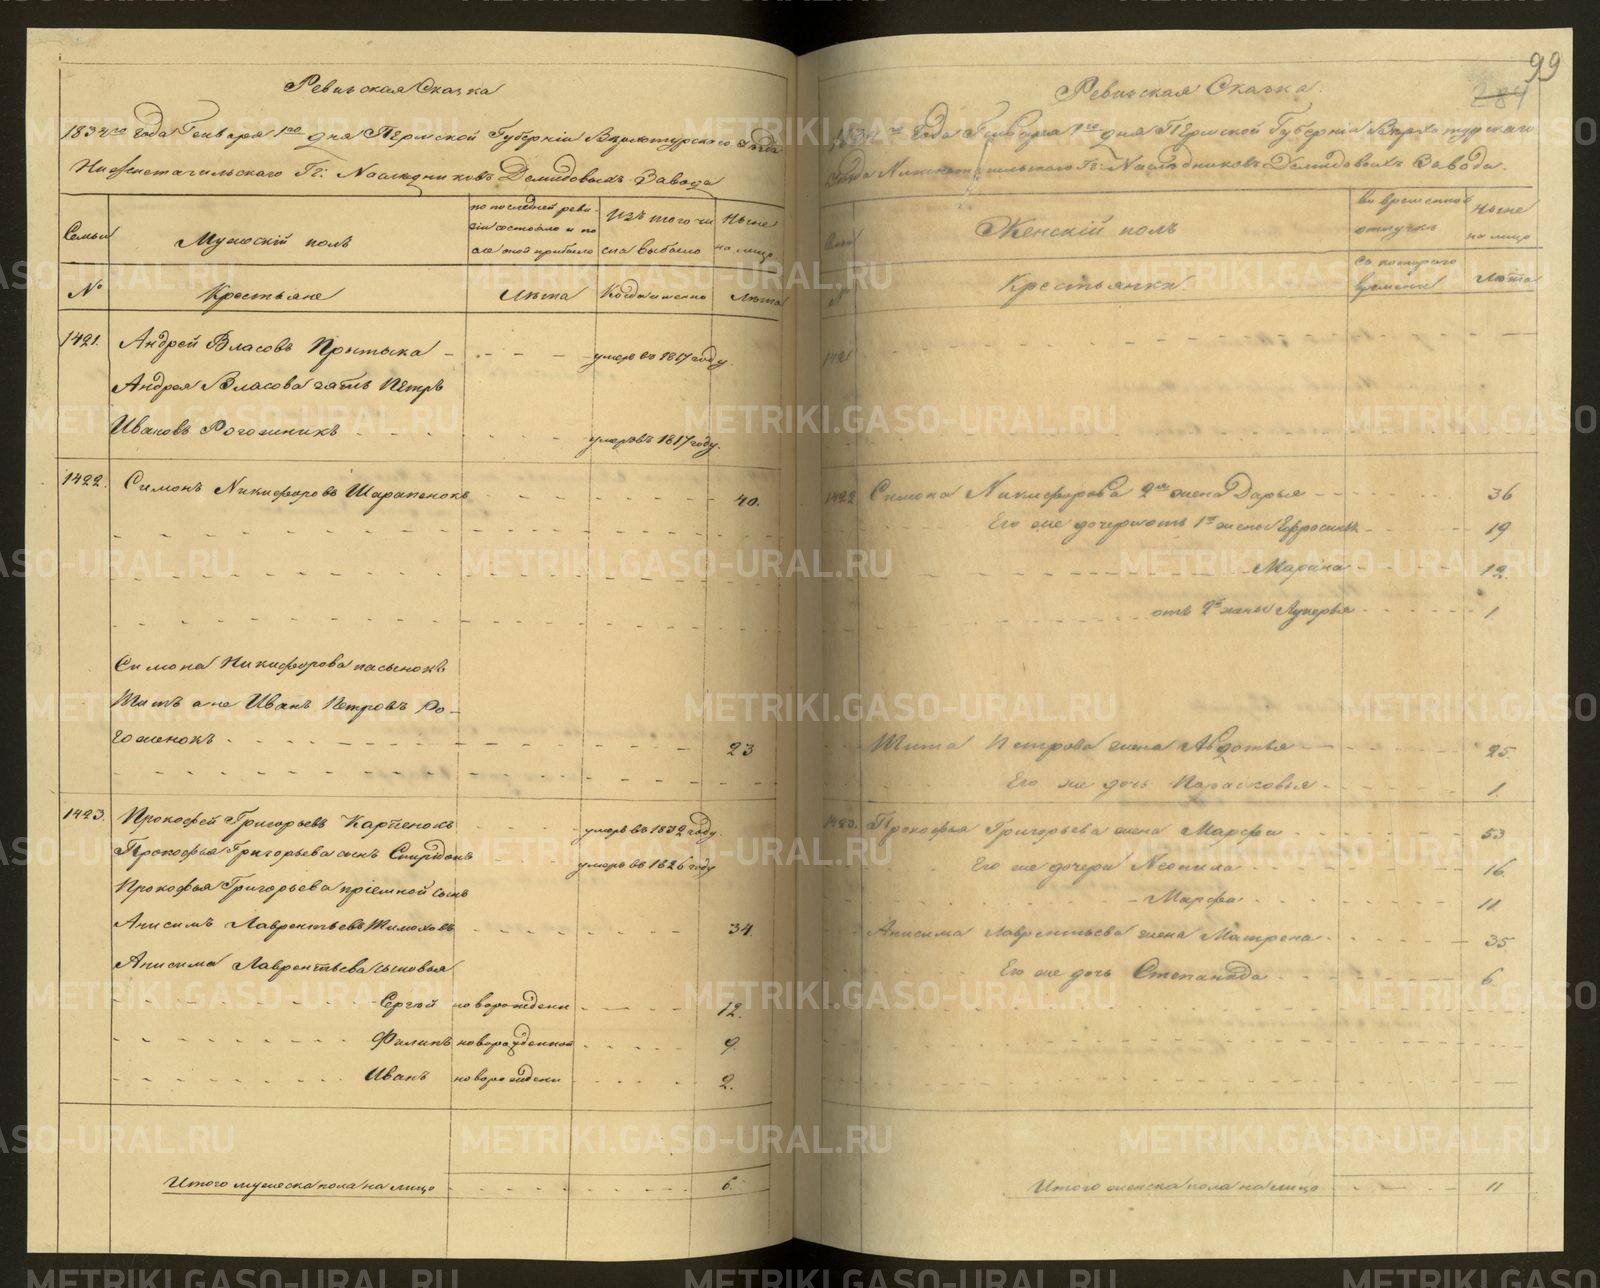 Ревизская Сказка
1834го года Генваря 1го дня Пермской Губернiи Верхотурскаго Уезда
Нижнетагильскаго Гг: Наследниковъ Демидовыхъ Завода
Семьи
Мужескiй полъ
по последней реви-
зiи состояло и по
сле той прибыло
Изъ того чи
сла выбыло
Ныне
на лицо
№
Крестьяне
Лѣта
Когда именно
Лѣта
1421. Андрей Власовъ умеръ въ 1817 году.
Андрея Власова зять Петръ
Ивановъ умеръ въ 1817 году.
1422. Симонъ Никифоровъ Шарапенокъ 40.
Симона Никифорова пасынокъ
Титъ онъ же Иванъ Петровъ Ро-
гоженокъ 23
1423. Прокофей Григорьевъ Карпенокъ умеръ въ 1832 году.
Прокофья Григорьева сынъ Спиридонъ умеръ въ 1826 году
Прокофья Григорьева прiемной сынъ
Анисимъ Лаврентьевъ 34.
Анисима Лаврентьева сыновья
Сергѣй новорожденн 12.
Филипъ новорожденной 9.
Иванъ новорожденн 2.
Итого мужеска пола на лицо 6.
99
284
Ревизская Сказка.
1834го года Генваря 1го дня Пермской Губернiи Верхотурскаго
Уезда Нижнетагильскаго Гг: Наследниковъ Демидовыхъ Завода.
Семьи
Женскiй полъ
во временной
отлучкѣ
Ныне
на лицо
№
Крестьянки
съ котораго
времени
Лѣта
1421
1422 Симона Никифорова 2я жена Дарья 36
Его же дочери отъ 1й жены Ефросинья 19
Марина 12.
отъ 2й жены Лукерья 1
Тита Петрова жена Авдотья 25.
Его же дочь Парасковья 1.
1423. Прокофья Григорьева жена Марфа 53
Его же дочери Неонила 16.
Марфа 11
Анисима Лаврентьева жена Матрена 35.
Его же дочь Степанида 6.
Итого женска пола на лицо 11
METRIKI.GASO-URAL.RU